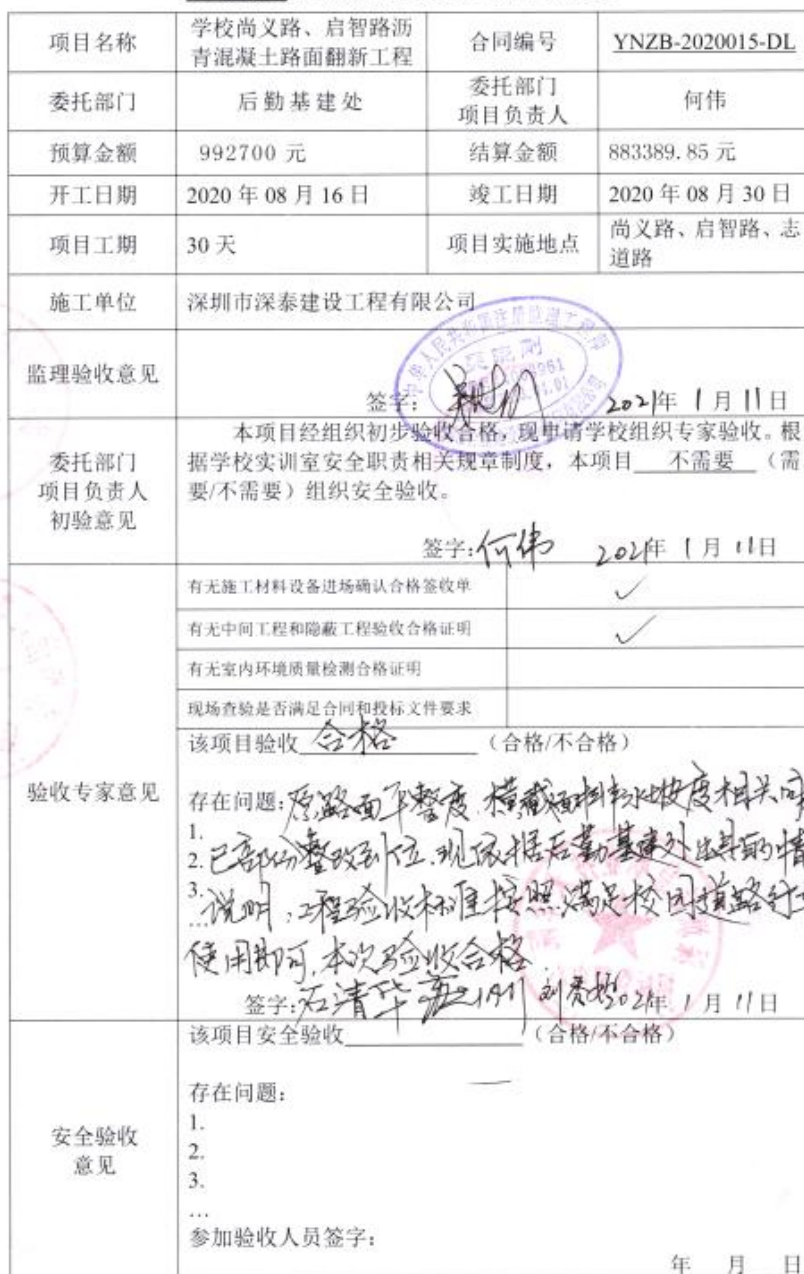 项目名称
学校尚义路、启智路沥
青混凝土路面翻新工程
合同编号
YNZB-2020015-DL
委托部门
后勤基建处
委托部门
项目负责人
何伟
预算金额
992700 元
结算金额
883389.85 元
开工日期
2020 年 08 月 16 日
竣工日期
2020 年 08 月 30 日
项目工期
30 天
项目实施地点
尚义路、启智路、志
道路
施工单位
深圳市深泰建设工程有限公司
监理验收意见
签字:
2021年 1 月 11 日
委托部门
项目负责人
初验意见
本项目经组织初步验收合格，现申请学校组织专家验收。根
据学校实训室安全职责相关规章制度，本项目 不需要 （需
要/不需要）组织安全验收。
签字:何伟 2021年 1 月 11日
验收专家意见
有无施工材料设备进场确认合格签收单 ✓
有无中间工程和隐蔽工程验收合格证明 ✓
有无室内环境质量检测合格证明
现场查验是否满足合同和投标文件要求
该项目验收 合格 （合格/不合格）
存在问题: 原路面平整度、横截面排水坡度相关问
1.
2. 已部份整改到位、现依据后勤基建处出具的情
3. 说明，工程验收标准按照满足校园道路行
...
使用即可，本次验收合格
签字: 石清华 2021年 1 月 11 日
安全验收
意见
该项目安全验收 （合格/不合格）
存在问题:
1.
2.
3.
...
参加验收人员签字:
年 月 日